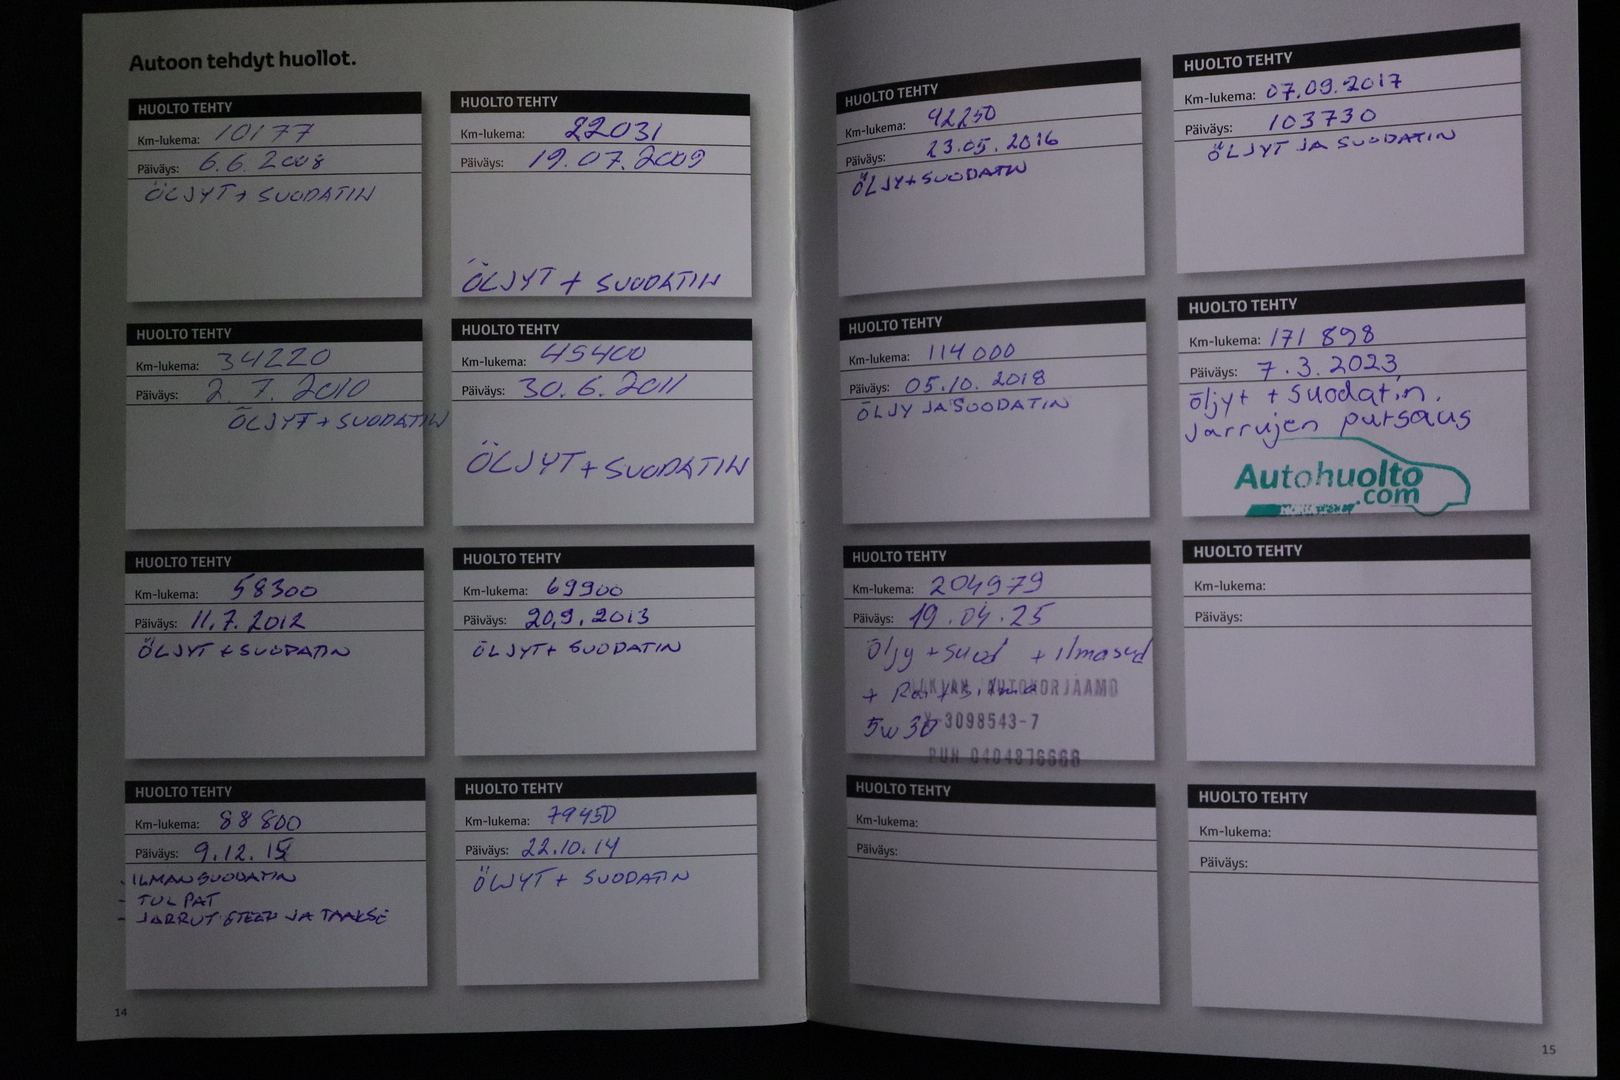 Autoon tehdyt huollot.
HUOLTO TEHTY
Km-lukema: 10177
Päiväys: 6.6.2008
ÖLJYT + SUODATIN
HUOLTO TEHTY
Km-lukema: 22031
Päiväys: 19.07.2009
ÖLJYT + SUODATIN
HUOLTO TEHTY
Km-lukema: 34220
Päiväys: 2.7.2010
ÖLJYT + SUODATIN
HUOLTO TEHTY
Km-lukema: 45400
Päiväys: 30.6.2011
ÖLJYT + SUODATIN
HUOLTO TEHTY
Km-lukema: 58300
Päiväys: 11.7.2012
ÖLJYT + SUODATIN
HUOLTO TEHTY
Km-lukema: 69900
Päiväys: 20.9.2013
ÖLJYT + SUODATIN
HUOLTO TEHTY
Km-lukema: 88800
Päiväys: 9.12.15
- ILMANSUODATIN
- TULPAT
- JARRUT ETEEN JA TAAKSE
HUOLTO TEHTY
Km-lukema: 79450
Päiväys: 22.10.14
ÖLJYT + SUODATIN
14
HUOLTO TEHTY
Km-lukema: 92250
Päiväys: 23.05.2016
ÖLJY + SUODATIN
HUOLTO TEHTY
Km-lukema: 07.09.2017
Päiväys: 103730
ÖLJYT JA SUODATIN
HUOLTO TEHTY
Km-lukema: 114000
Päiväys: 05.10.2018
ÖLJY JA SUODATIN
HUOLTO TEHTY
Km-lukema: 171 898
Päiväys: 7.3.2023
Öljyt + suodatin.
Jarrujen putsaus
Autohuolto
.com
HUOLTO TEHTY
Km-lukema: 204979
Päiväys: 19.04.25
Öljy + suod + ilmasud
+
AUTOKORJAAMO
5w30
Y-3098543-7
PUH 0404876668
HUOLTO TEHTY
Km-lukema:
Päiväys:
HUOLTO TEHTY
Km-lukema:
Päiväys:
HUOLTO TEHTY
Km-lukema:
Päiväys:
15